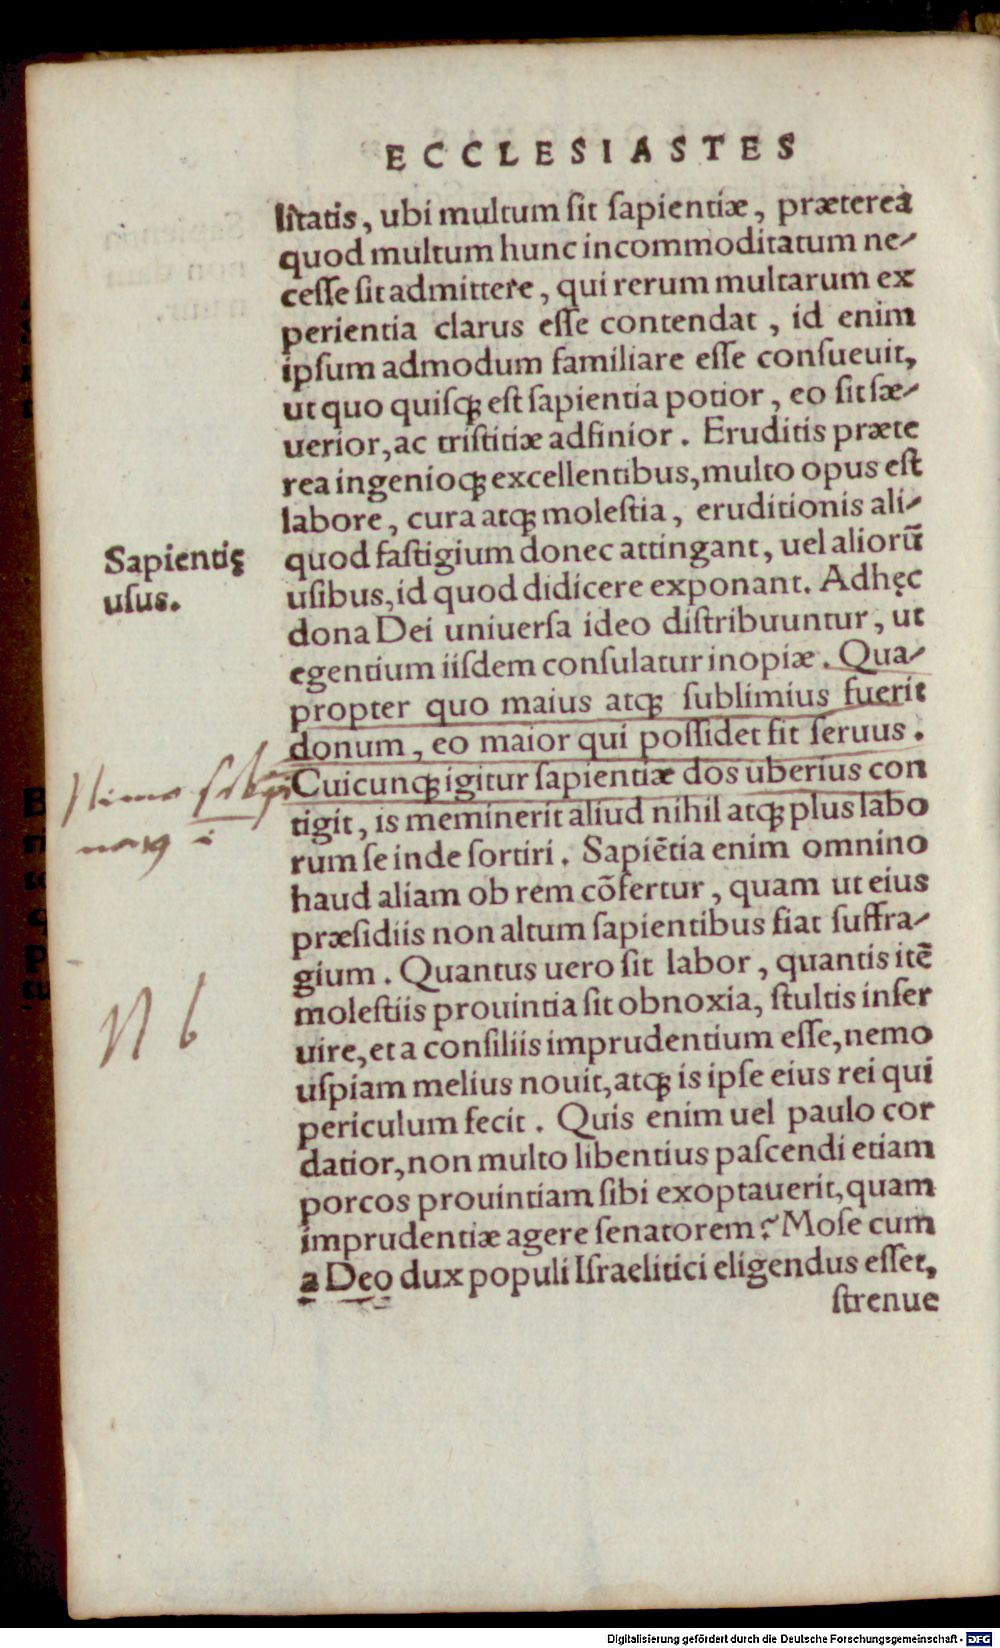 ECCLESIASTES
litatis, ubi multum ſit ſapientiæ, præterea
quod multum hunc incommoditatum ne⸗
ceſſe ſit admittere, qui rerum multarum ex
perientia clarus eſſe contendat, id enim
ipſum admodum familiare eſſe conſueuit,
ut quo quiſqꝫ eſt ſapientia potior, eo ſit ſæ⸗
uerior, ac triſtitiæ adfinior. Eruditis præte
rea ingenioqꝫ excellentibus, multo opus eſt
labore, cura atqꝫ moleſtia, eruditionis ali⸗
Sapientię
uſus.
quod faſtigium donec attingant, uel aliorū
uſibus, id quod didicere exponant. Ad hęc
dona Dei uniuerſa ideo diſtribuuntur, ut
egentium iiſdem conſulatur inopiæ. Qua⸗
propter quo maius atqꝫ ſublimius fuerit
donum, eo maior qui poſſidet fit ſeruus.
Cuicunqꝫ igitur ſapientiæ dos uberius con
tigit, is meminerit aliud nihil atqꝫ plus labo
rum ſe inde ſortiri. Sapiētia enim omnino
haud aliam ob rem cōfertur, quam ut eius
præſidiis non altum ſapientibus fiat ſuffra⸗
gium. Quantus uero ſit labor, quantis itē
N b
moleſtiis prouintia ſit obnoxia, ſtultis inſer
uire, et a conſiliis imprudentium eſſe, nemo
uſpiam melius nouit, atqꝫ is ipſe eius rei qui
periculum fecit. Quis enim uel paulo cor
datior, non multo libentius paſcendi etiam
porcos prouintiam ſibi exoptauerit, quam
imprudentiæ agere ſenatorem? Moſe cum
a Deo dux populi Iſraelitici eligendus eſſet,
ſtrenue
Digitalisierung gefördert durch die Deutsche Forschungsgemeinschaft - DFG